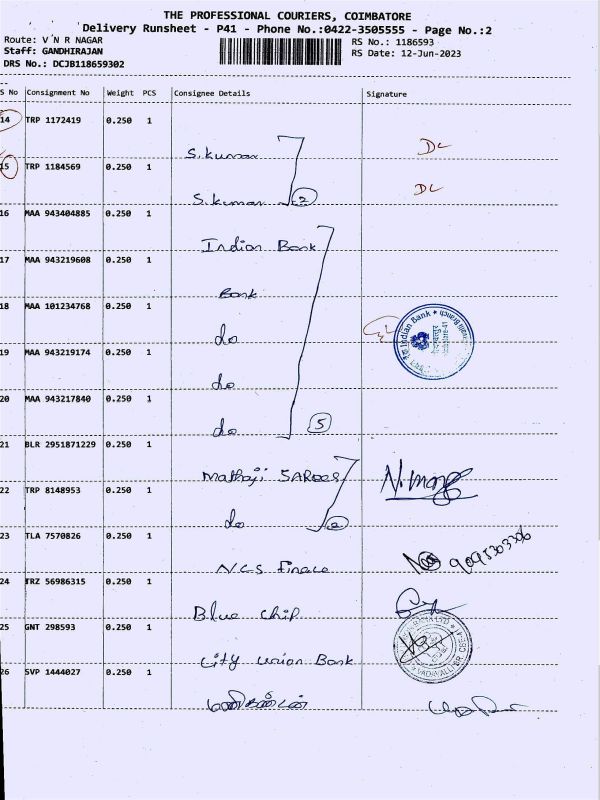 THE PROFESSIONAL COURIERS, COIMBATORE
Delivery Runsheet - P41 - Phone No.:0422-3505555 - Page No.:2
Route: V N R NAGAR
RS No.: 1186593
Staff: GANDHIRAJAN
RS Date: 12-Jun-2023
DRS No.: DCJB118659302
S No Consignment No Weight PCS Consignee Details Signature
14 TRP 1172419 0.250 1
S. kumar DL
15 TRP 1184569 0.250 1
S. kumar 2 DL
16 MAA 943404885 0.250 1
Indian Bank
17 MAA 943219608 0.250 1
Bank
18 MAA 101234768 0.250 1
do Indian Bank
19 MAA 943219174 0.250 1
do
20 MAA 943217840 0.250 1
do 5
21 BLR 2951871229 0.250 1
Mathaji SAREES
22 TRP 8148953 0.250 1
do 2
23 TLA 7570826 0.250 1
NCS Finace
24 TRZ 56986315 0.250 1
Blue chip
25 GNT 298593 0.250 1
City union Bank
26 SVP 1444027 0.250 1
மணிகண்டன்